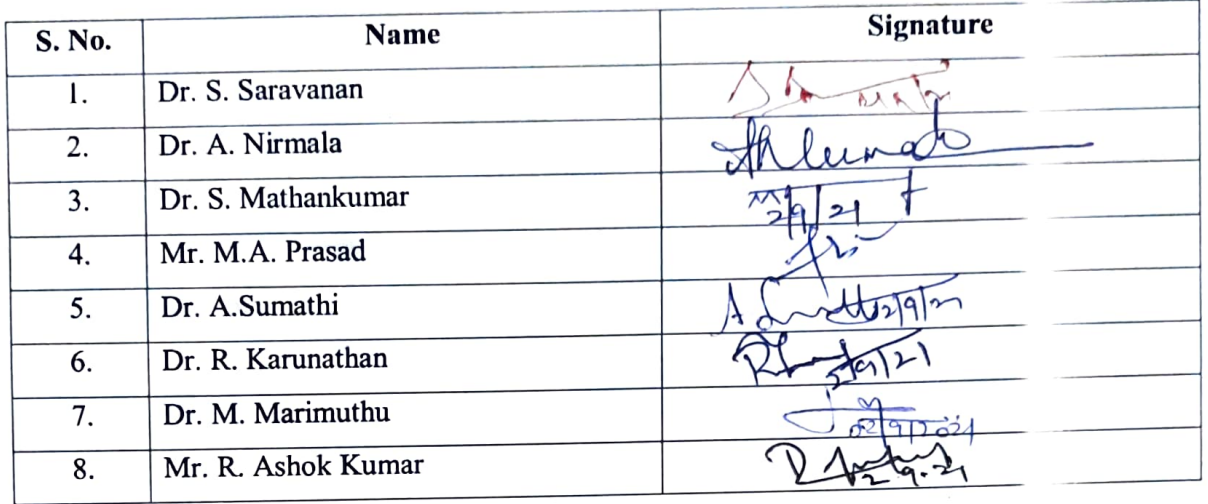 S. No. Name Signature
1. Dr. S. Saravanan
2. Dr. A. Nirmala
3. Dr. S. Mathankumar 2/9/21
4. Mr. M.A. Prasad
5. Dr. A.Sumathi 2/9/21
6. Dr. R. Karunathan 2/9/21
7. Dr. M. Marimuthu 02/9/2021
8. Mr. R. Ashok Kumar 2.9.21